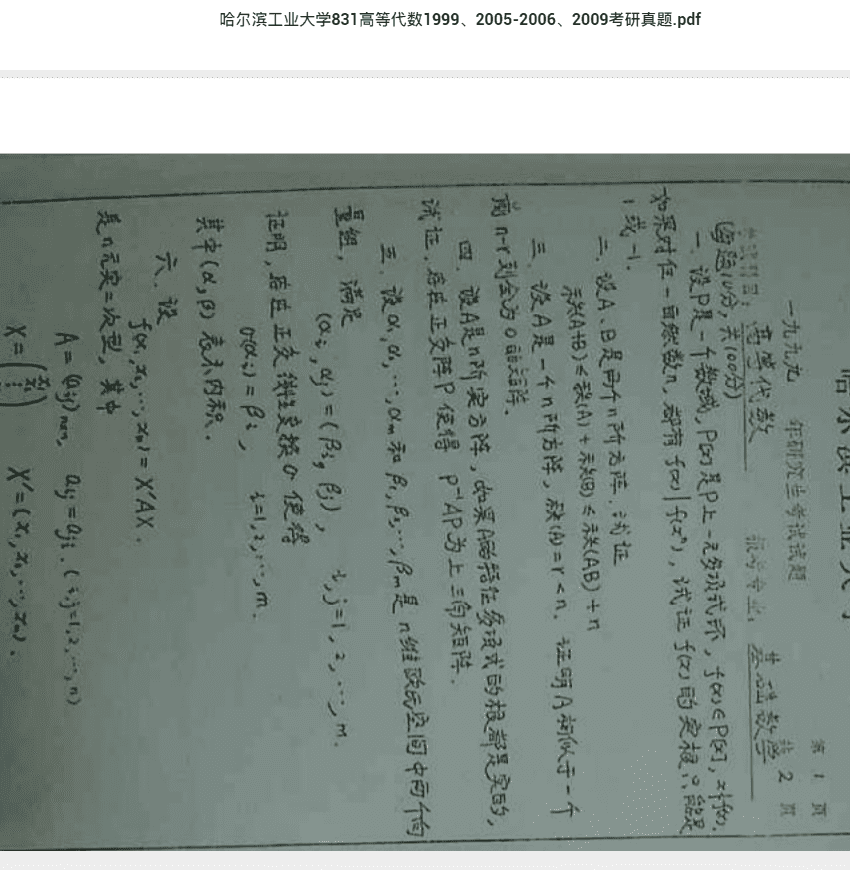 哈尔滨工业大学831高等代数1999、2005-2006、2009考研真题.pdf
第 1 页
共 2 页
一九九九 年研究生考试试题
考试科目: 高等代数 报考专业: 基础数学
(每题10分,共100分)
一. 设P是一个数域, P[x]是P上一元多项式环, f(x)∈P[x], x∤f(x),
如果对任一自然数n, 都有 f(x)|f(xⁿ), 试证 f(x)的实根只能是
1或-1.
二、设A、B是两个n阶方阵. 试证
秩(A+B)≤秩(A)+秩(B)≤秩(AB)+n
三、设A是一个n阶方阵, 秩(A)=r<n. 证明A相似于一个
后n-r列全为0的矩阵.
四. 设A是n阶实方阵, 如果A的特征多项式的根都是实的,
试证, 存在正交阵P使得 P⁻¹AP为上三角矩阵.
五. 设α₁,α₂,…,αm和β₁,β₂,…,βm是n维欧氏空间中两个向
量组, 满足
(αi, αj)=(βi, βj), i,j=1,2,…,m.
证明, 存在正交线性变换σ使得
σ(αi)=βi, i=1,2,…,m.
其中(α,β)表示内积.
六. 设
f(x₁,x₂,…,xn)=X′AX.
是n元实二次型, 其中
A=(aij)n×n, aij=aji. (i,j=1,2,…,n)
X=(x₁ x₂ ⋮ xn) X′=(x₁,x₂,…,xn).